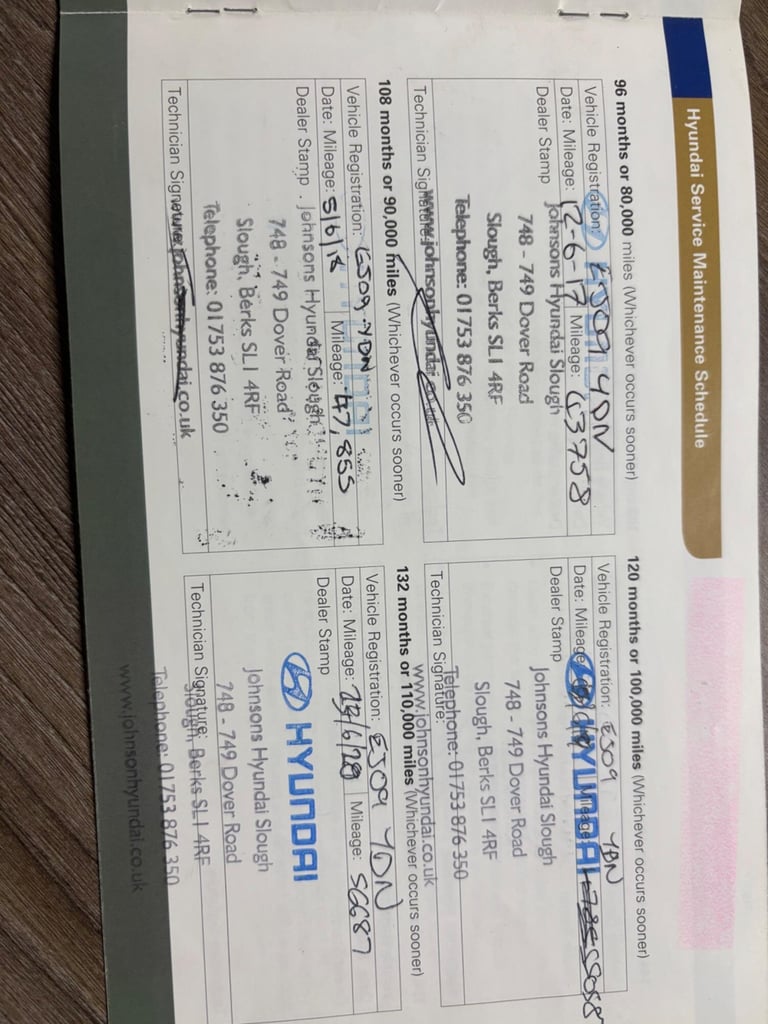 Hyundai Service Maintenance Schedule
96 months or 80,000 miles (Whichever occurs sooner)
Vehicle Registration: EJ09 YDN
Date: 12-6-17 Mileage:
Dealer Stamp
Johnsons Hyundai Slough
748 - 749 Dover Road
Slough, Berks SL1 4RF
Telephone: 01753 876 350
www.johnsonhyundai.co.uk
Technician Signature:
108 months or 90,000 miles (Whichever occurs sooner)
Vehicle Registration: EJ09 YDN
Date: 5/6/18 Mileage: 47,855
Dealer Stamp
Johnsons Hyundai Slough
748 - 749 Dover Road
Slough, Berks SL1 4RF
Telephone: 01753 876 350
www.johnsonhyundai.co.uk
Technician Signature:
120 months or 100,000 miles (Whichever occurs sooner)
Vehicle Registration: EJ09 YDN
Date: Mileage:
HYUNDAI
Dealer Stamp
Johnsons Hyundai Slough
748 - 749 Dover Road
Slough, Berks SL1 4RF
Telephone: 01753 876 350
www.johnsonhyundai.co.uk
Technician Signature:
132 months or 110,000 miles (Whichever occurs sooner)
Vehicle Registration: EJ09 YDN
Date: Mileage: 56687
Dealer Stamp
HYUNDAI
Johnsons Hyundai Slough
748 - 749 Dover Road
Slough, Berks SL1 4RF
Technician Signature:
Telephone: 01753 876 350
www.johnsonhyundai.co.uk